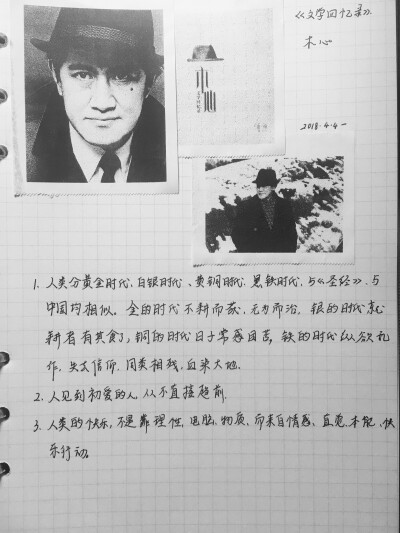 《文学回忆录》
木心
木心
2018.4.4—
1. 人类分黄金时代、白银时代、黄铜时代、黑铁时代,与《圣经》、与
中国均相似。金的时代不耕而获,无为而治。银的时代就
耕者有其食了,铜的时代日子常感困苦,铁的时代纵欲乱
作,失去信仰,同类相残,血染大地。
2. 人见到初爱的人,从不直接趋前。
3. 人类的快乐,不是靠理性、电脑、物质,而来自情感、直觉、本能、快
乐行动。